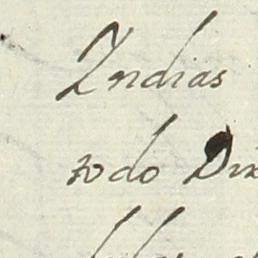 Yndias
todo Dix